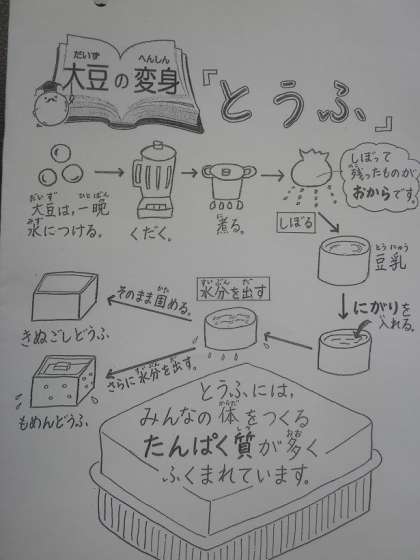 だいず
へんしん
大豆の変身
『とうふ』
だいず
ひとばん
大豆は、一晩
みず
水につける。
くだく。
に
煮る。
しぼって
のこ
残ったものが
おからです。
しぼる
とうにゅう
豆乳
にがりを
い
入れる。
すいぶん
だ
水分を出す
かた
そのまま固める。
きぬごしどうふ
すいぶん
だ
さらに水分を出す。
もめんどうふ
とうふには、
からだ
みんなの体をつくる
しつ
おお
たんぱく質が多く
ふくまれています。